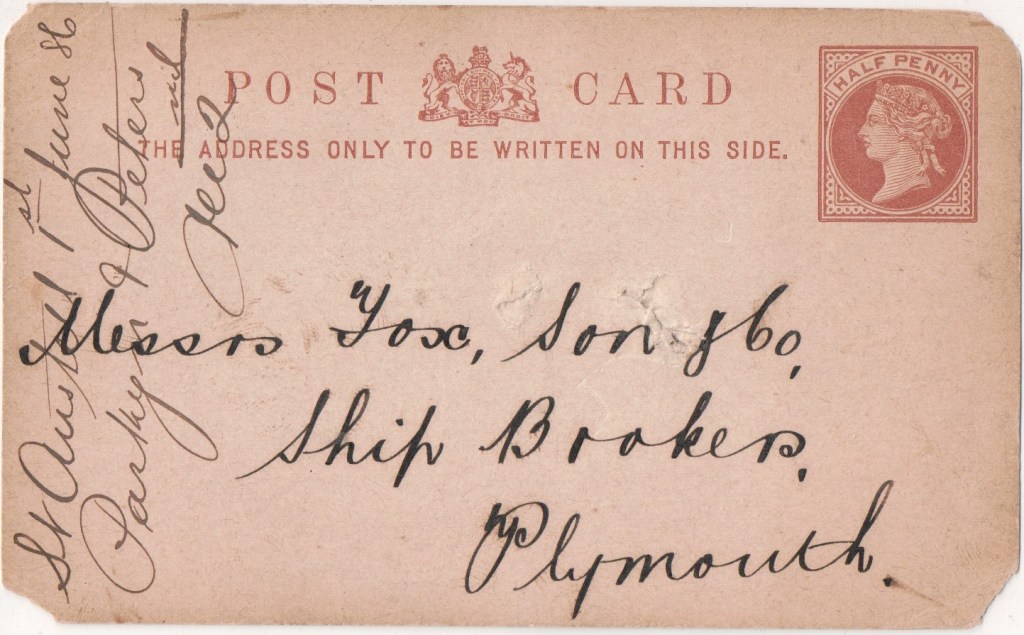 POST CARD
HALF PENNY
THE ADDRESS ONLY TO BE WRITTEN ON THIS SIDE.
Messrs Fox, Son & Co,
Ship Brokers,
Plymouth.
St Austell 1st June 86
Parkyn & Peters